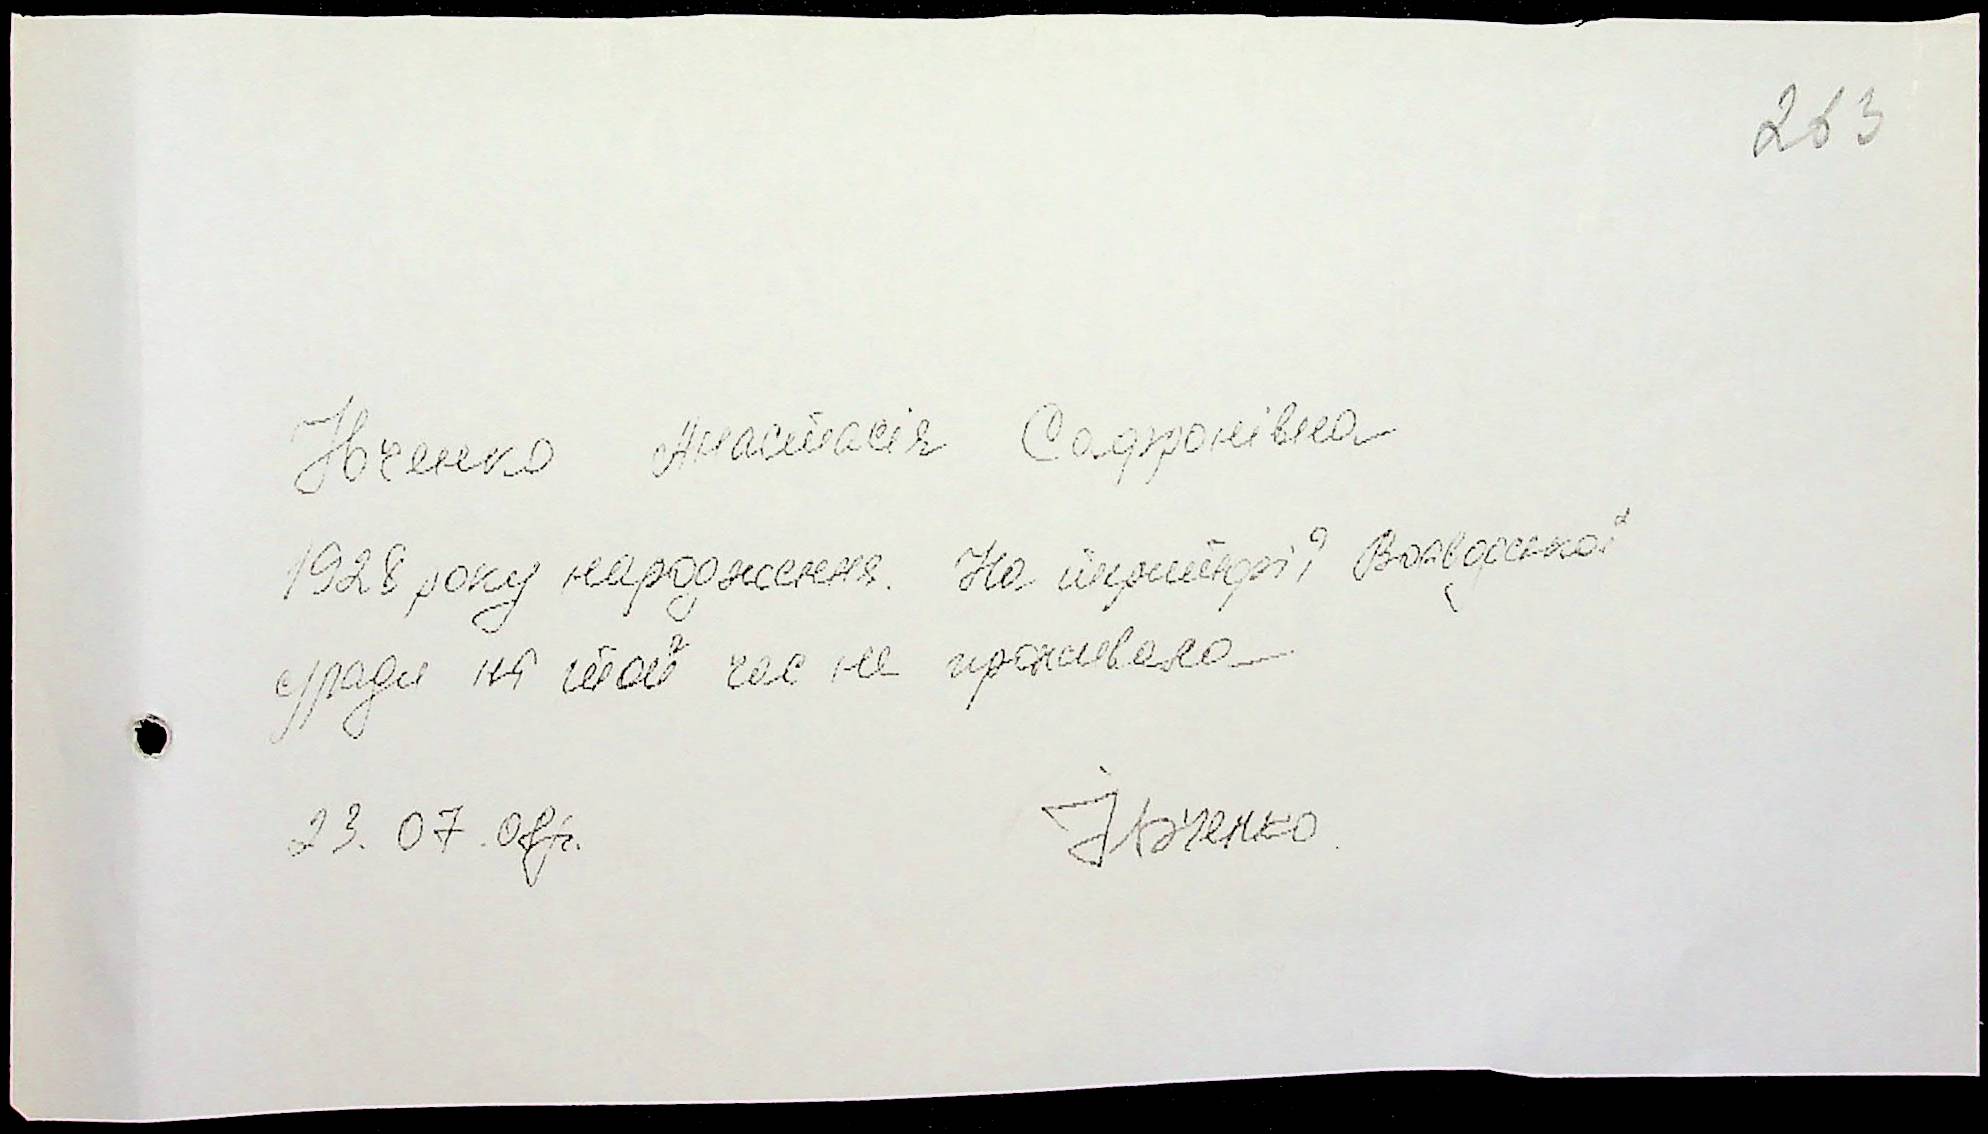 263
Ююченко Анастасія Сафронівна
1928 року народження. На території
ради на той час не проживала
23. 07. 08р.